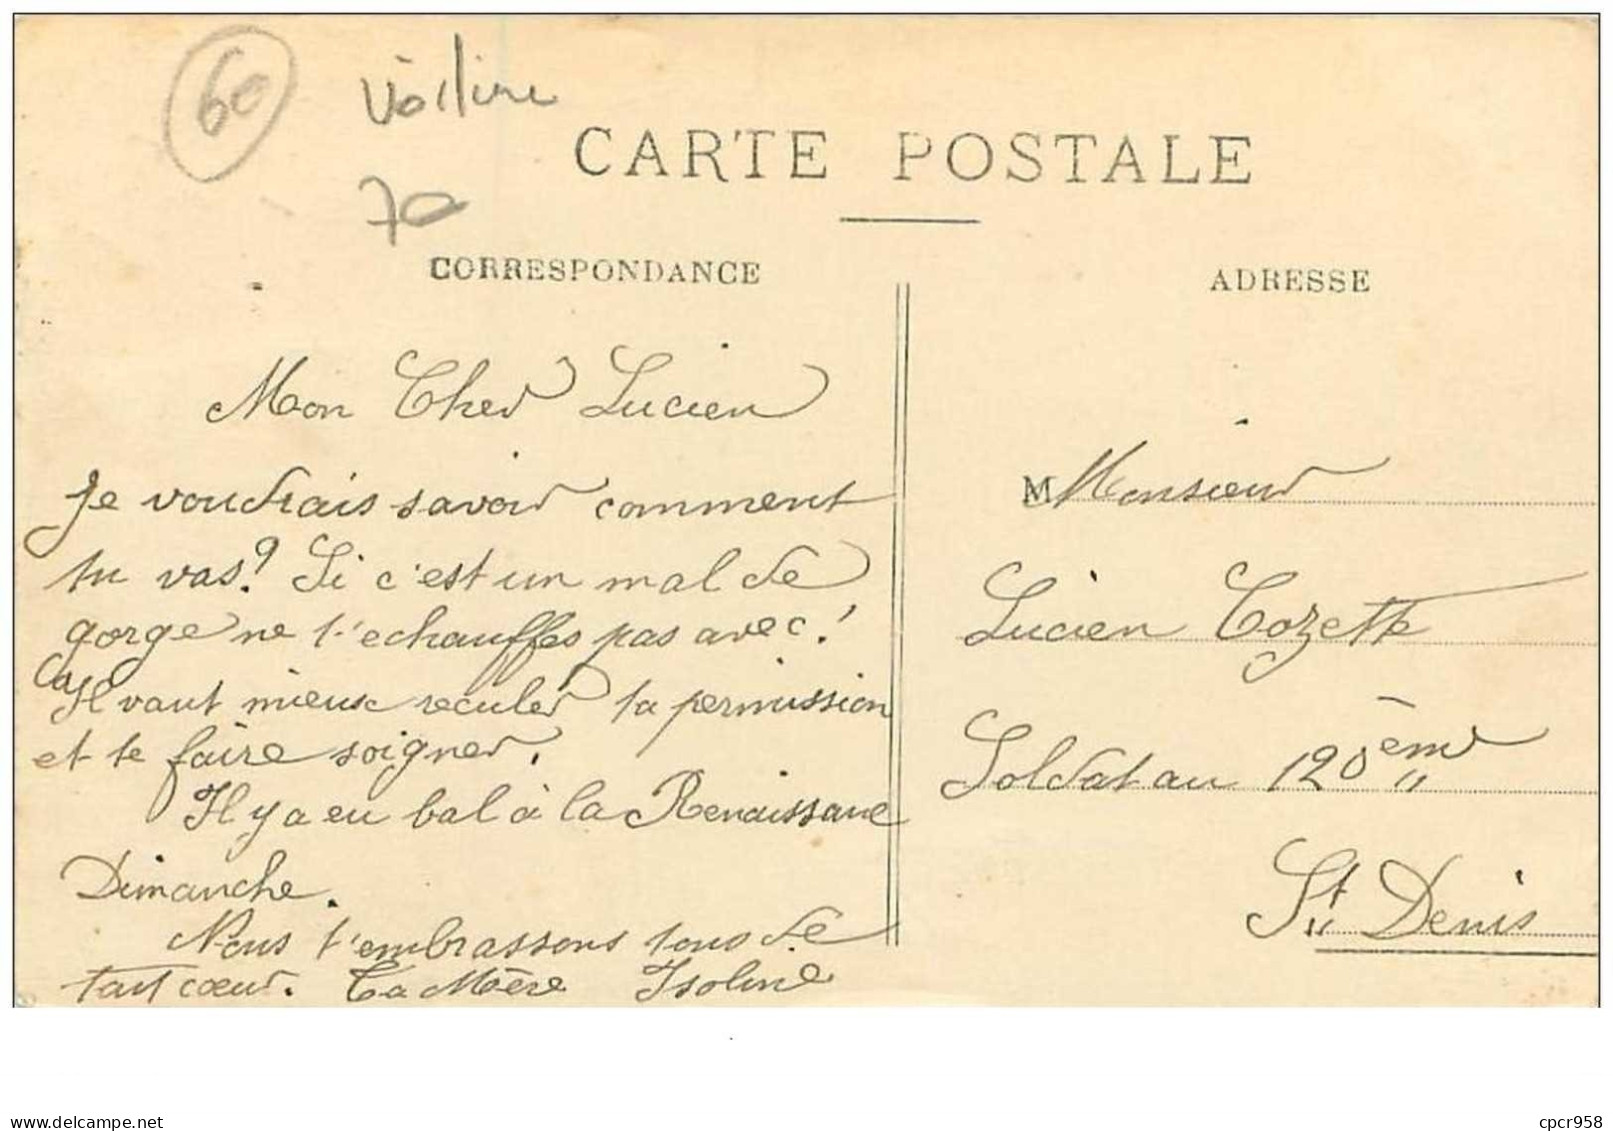 60
70
CARTE POSTALE
CORRESPONDANCE
ADRESSE
Mon Cher Lucien
Je voudrais savoir comment
tu vas? Si c'est un mal de
gorge ne t'echauffes pas avec!
Ca
Il vaut mieux reculer ta permission
et te faire soigner.
Il y a eu bal à la Renaissance
Dimanche.
Nous t'embrassons tous de
tout cœur. Ta Mère Isoline
M Monsieur
Lucien Cozette
Soldat au 120ème
St Denis
delcampe.net
cpcr958